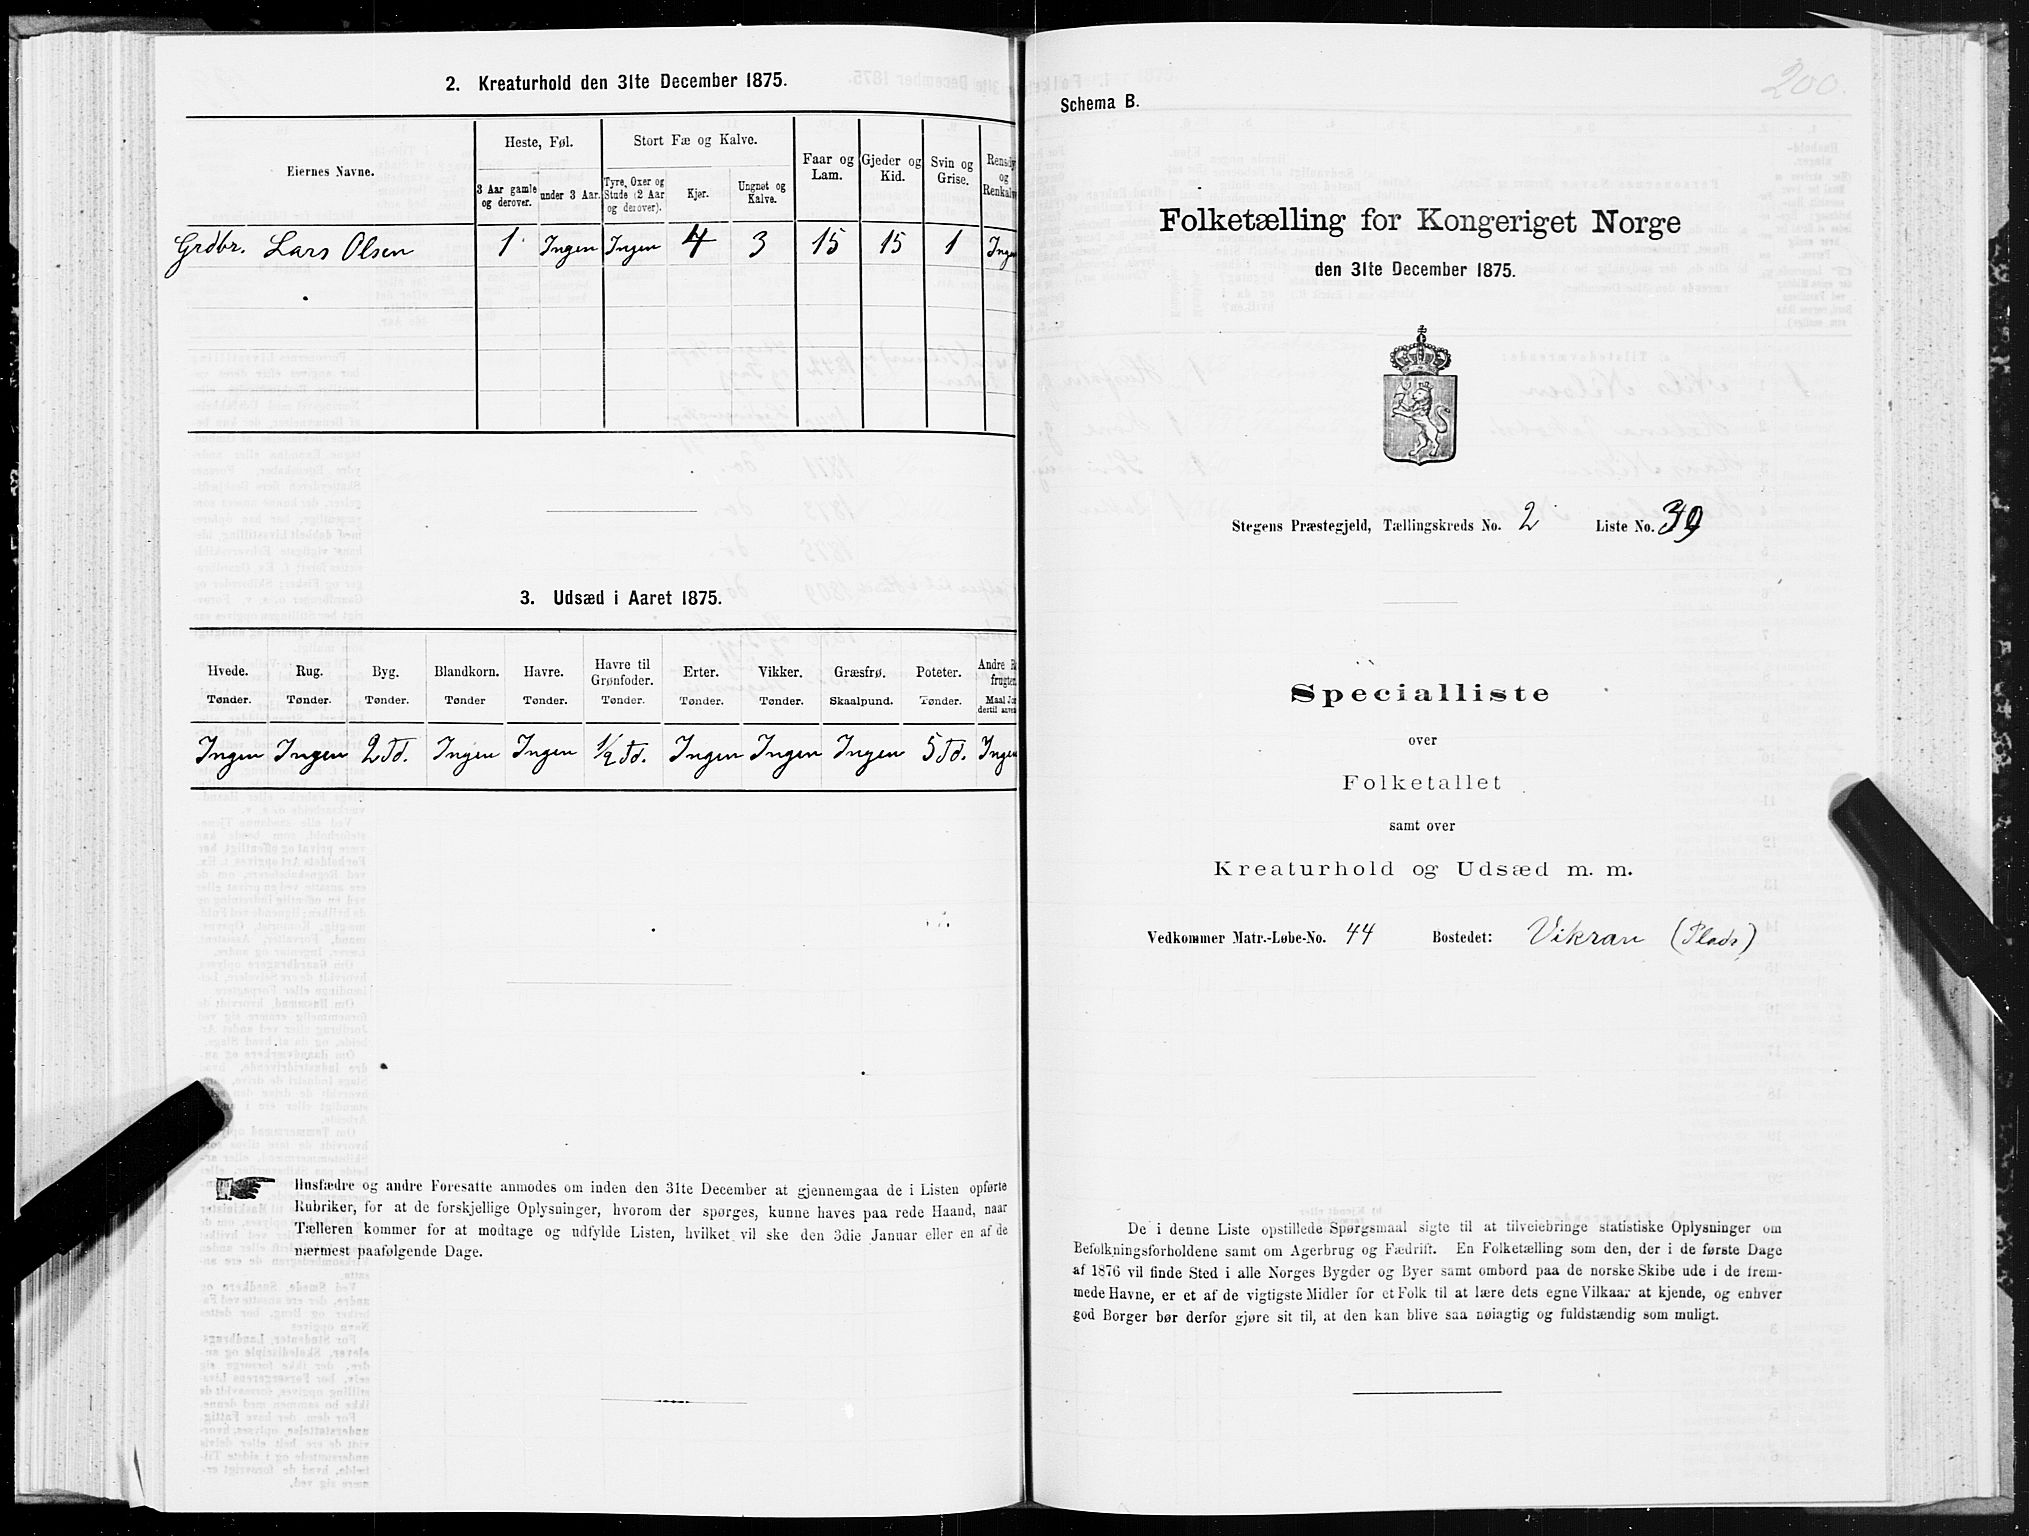 2. Kreaturhold den 31te December 1875.
Eiernes Navne.
Heste, Føl.
3 Aar gamle og derover.
under 3 Aar.
Stort Fæ og Kalve.
Tyre, Oxer og Stude (2 Aar og derover).
Kjør.
Ungnøt og Kalve.
Faar og Lam.
Gjeder og Kid.
Svin og Grise.
Rensdy
og
Renkalve
Grdbr. Lars Olsen 1 Ingen Ingen 4 3 15 15 1 Inge
3. Udsæd i Aaret 1875.
Hvede. Rug. Byg. Blandkorn. Havre. Havre til Grønfoder. Erter. Vikker. Græsfrø. Poteter. Andre
frugter
Tønder. Tønder. Tønder. Tønder Tønder. Tønder. Tønder. Tønder. Skaalpund. Tønder. Maal
dertil anven
Ingen Ingen 2 Td. Ingen Ingen 1/2 Td. Ingen Ingen Ingen 5 Td. Ingen
Husfædre og andre Foresatte anmodes om inden den 31te December at gjennemgaa de i Listen opførte
Rubriker, for at de forskjellige Oplysninger, hvorom der spørges, kunne haves paa rede Haand, naar
Tælleren kommer for at modtage og udfylde Listen, hvilket vil ske den 3die Januar eller en af de
nærmest paafølgende Dage.
200.
Schema B.
Folketælling for Kongeriget Norge
den 31te December 1875.
Stegens Præstegjeld, Tællingskreds No. 2 Liste No. 39
Specialliste
over
Folketallet
samt over
Kreaturhold og Udsæd m. m.
Vedkommer Matr.-Løbe-No. 44 Bostedet: Vikran (Plads)
De i denne Liste opstillede Spørgsmaal sigte til at tilveiebringe statistiske Oplysninger om
Befolkningsforholdene samt om Agerbrug og Fædrift. En Folketælling som den, der i de første Dage
af 1876 vil finde Sted i alle Norges Bygder og Byer samt ombord paa de norske Skibe ude i de frem-
mede Havne, er et af de vigtigste Midler for et Folk til at lære dets egne Vilkaar at kjende, og enhver
god Borger bør derfor gjøre sit til, at den kan blive saa nøiagtig og fuldstændig som muligt.